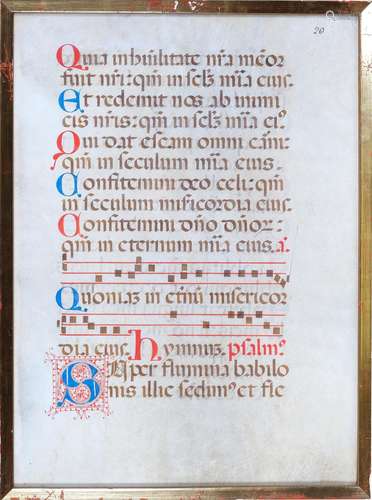 20
Quia in humilitate nr̃a mẽor
fuit nr̃i: qm̃ in sclz̃ mĩa eius.
Et redemit nos ab inimi
cis nr̃is: qm̃ in sclz̃ mĩa ei9
Qui dat escam omni carni:
qm̃ in seculum mĩa eius.
Confitemini deo celi: qm̃
in seculum misericordia eius.
Confitemini dño dñor:
qm̃ in eternum mĩa eius. a.
Quoniaz in etnũ misericor
dia eius. hymnuz. psalm9
Super flumina babilo
nis illic sedim9 et fle